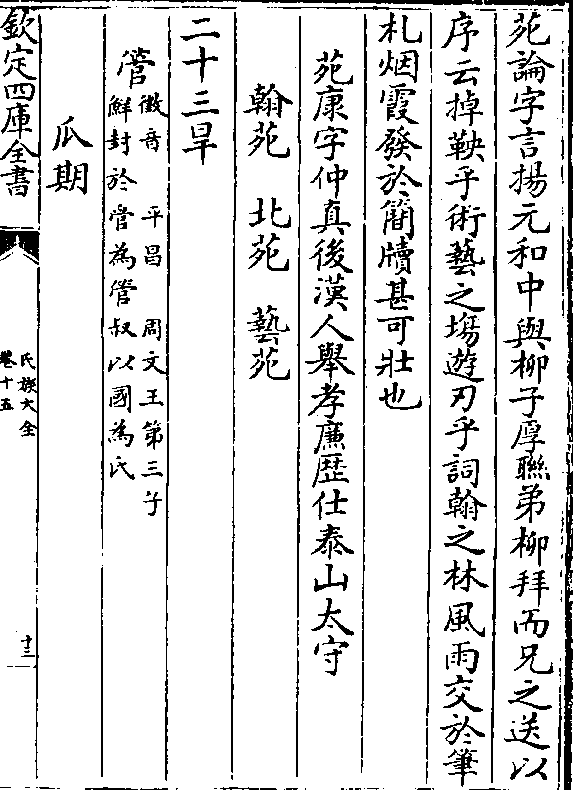 苑論字言揚元和中與柳子厚聯弟柳拜而兄之送以
序云掉鞅乎術藝之塲遊刃乎詞翰之林風雨交於筆
札烟霞發於簡牘甚可壯也
苑康字仲真後漢人舉孝廉歴仕泰山太守
翰苑 北苑 藝苑
二十三旱
管徵音 平昌 周文王第三子
鮮封於管為管叔以國為氏
瓜期
欽定四庫全書
氏族大全
卷十五
十三